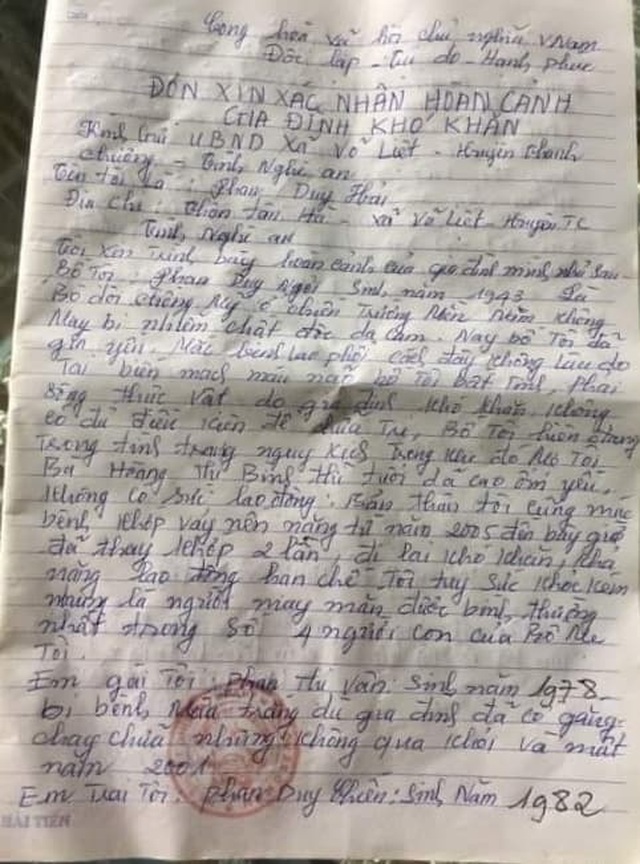 Cộng hoà xã hội chủ nghĩa V Nam
Độc lập - Tự do - Hạnh phúc
ĐƠN XIN XÁC NHẬN HOÀN CẢNH
GIA ĐÌNH KHÓ KHĂN
Kính gửi UBND Xã Võ Liệt - Huyện Thanh
Chương - Tỉnh Nghệ an
Tên tôi là : Phan Duy Hải
Địa chỉ : Thôn Tân Hà - xã Võ Liệt Huyện TC
Tỉnh Nghệ an
Tôi xin trình bày hoàn cảnh của gia đình mình như sau
Bố Tôi : Phan Duy Ngôi Sinh năm 1943 Là
Bộ đội chống Mỹ ở chiến Trường Miền Nam không
May bị nhiễm chất độc da cam. Nay bố Tôi đã
già yếu. Mắc bệnh lao phổi cách đây không lâu do
Tai biến mạch máu não bố Tôi bất tỉnh, Phải
sống thực vật do gia đình khó khăn không
có đủ điều kiện để chữa Trị, Bố Tôi hiện đang
Trong tình trạng nguy kịch Trong khi đó Mẹ Tôi
Bà Hoàng Thị Bình thì tuổi đã cao ốm yếu,
không có sức lao động. Bản thân tôi cũng mắc
bệnh khớp vảy nến nặng từ năm 2005 đến bây giờ
đã thay khớp 2 lần, đi lại khó khăn, khả
năng lao động hạn chế Tôi tuy sức khoẻ kém
nhưng là người may mắn được bình thường
nhất trong số 4 người con của Bố Mẹ
Tôi.
Em gái Tôi : Phan Thị Vân. Sinh năm 1978
bị bệnh Máu trắng dù gia đình đã cố gắng
chạy chữa nhưng không qua khỏi và mất
năm 2001
Em Trai Tôi : Phan Duy : Sinh Năm 1982
HẢI TIẾN